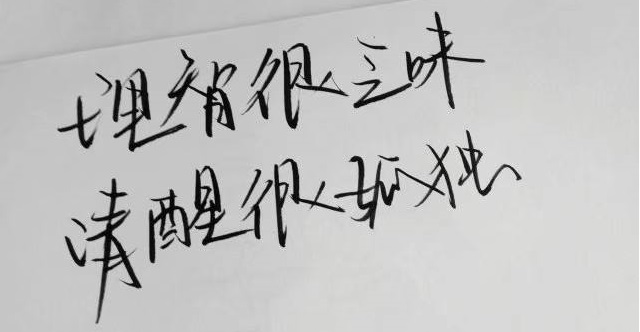 理智很乏味
清醒很孤独